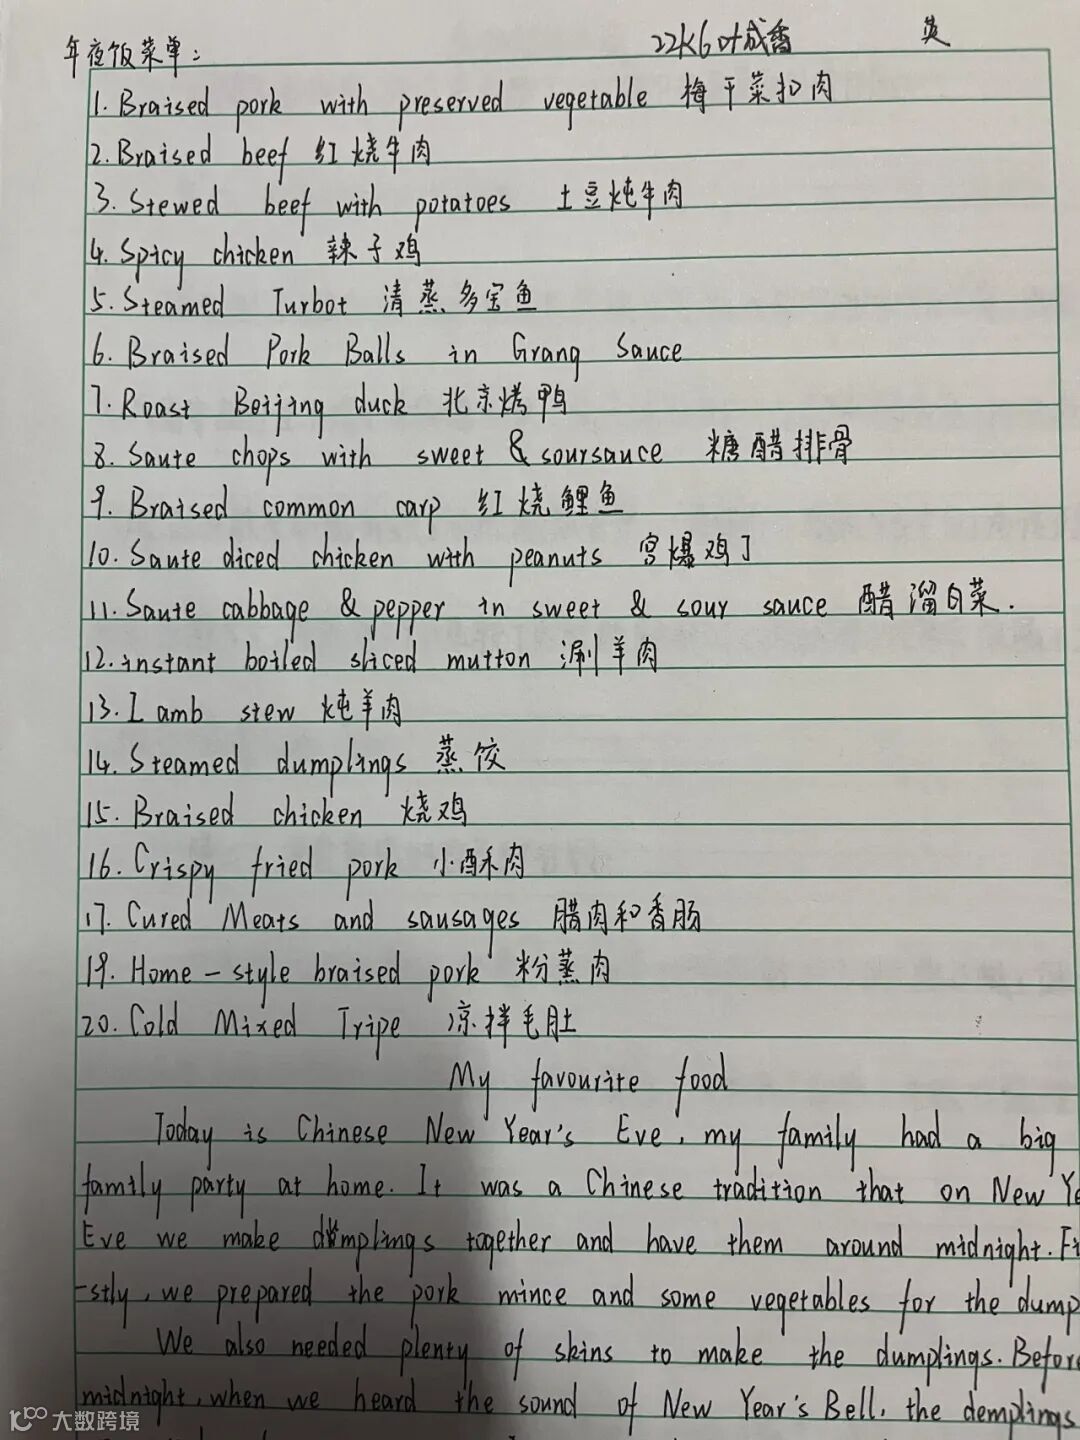 22K6叶成香 英
年夜饭菜单:
1. Braised pork with preserved vegetable 梅干菜扣肉
2. Braised beef 红烧牛肉
3. Stewed beef with potatoes 土豆炖牛肉
4. Spicy chicken 辣子鸡
5. Steamed Turbot 清蒸多宝鱼
6. Braised Pork Balls in Grang Sauce
7. Roast Beijing duck 北京烤鸭
8. Saute chops with sweet & soursauce 糖醋排骨
9. Braised common carp 红烧鲤鱼
10. Saute diced chicken with peanuts 宫爆鸡丁
11. Saute cabbage & pepper in sweet & sour sauce 醋溜白菜.
12. instant boiled sliced mutton 涮羊肉
13. Lamb stew 炖羊肉
14. Steamed dumplings 蒸饺
15. Braised chicken 烧鸡
16. Crispy fried pork 小酥肉
17. Cured Meats and sausages 腊肉和香肠
19. Home-style braised pork 粉蒸肉
20. Cold Mixed Tripe 凉拌毛肚
My favourite food
Today is Chinese New Year's Eve, my family had a big
family party at home. It was a Chinese tradition that on New Ye
Eve we make dumplings together and have them around midnight. Fi
-stly, we prepared the pork mince and some vegetables for the dump
We also needed plenty of skins to make the dumplings. Before
midnight, when we heard the sound of New Year's Bell, the demplings
大数跨境